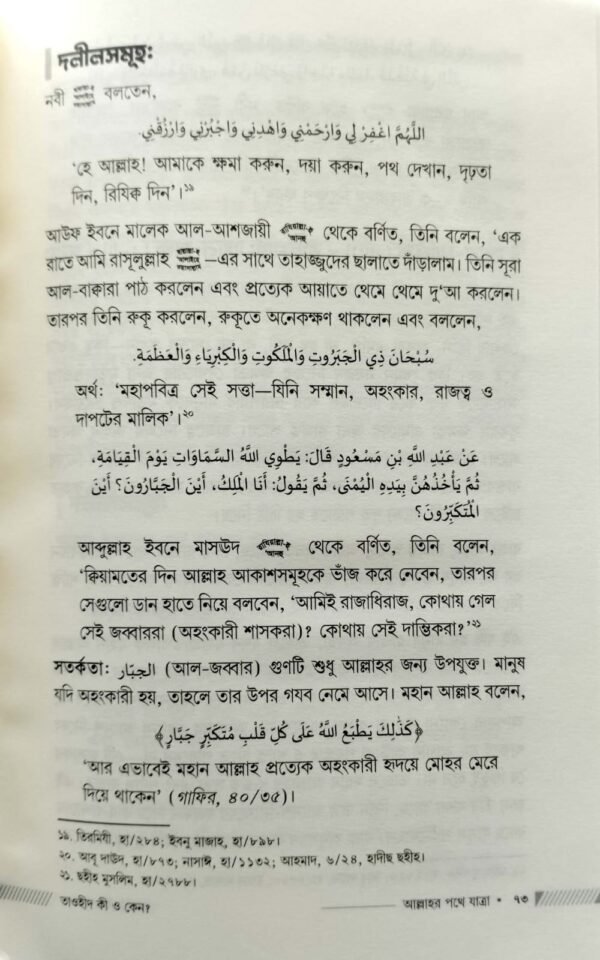 দলীলসমূহ:
নবী ﷺ বলতেন,
اللَّهُمَّ اغْفِرْ لِي وَارْحَمْنِي وَاهْدِنِي وَاجْبُرْنِي وَارْزُقْنِي.
‘হে আল্লাহ! আমাকে ক্ষমা করুন, দয়া করুন, পথ দেখান, দৃঢ়তা
দিন, রিযিক্ব দিন’।¹⁹
আউফ ইবনে মালেক আল-আশজায়ী রাযিয়াল্লা-হু আনহু থেকে বর্ণিত, তিনি বলেন, ‘এক
রাতে আমি রাসূলুল্লাহ ﷺ—এর সাথে তাহাজ্জুদের ছালাতে দাঁড়ালাম। তিনি সূরা
আল-বাক্বারা পাঠ করলেন এবং প্রত্যেক আয়াতে থেমে থেমে দু‘আ করলেন।
তারপর তিনি রুকূ করলেন, রুকূতে অনেকক্ষণ থাকলেন এবং বললেন,
سُبْحَانَ ذِي الْجَبَرُوتِ وَالْمَلَكُوتِ وَالْكِبْرِيَاءِ وَالْعَظَمَةِ.
অর্থ: ‘মহাপবিত্র সেই সত্তা—যিনি সম্মান, অহংকার, রাজত্ব ও
দাপটের মালিক’।²⁰
عَنْ عَبْدِ اللَّهِ بْنِ مَسْعُودٍ قَالَ: يَطْوِي اللَّهُ السَّمَاوَاتِ يَوْمَ الْقِيَامَةِ،
ثُمَّ يَأْخُذُهُنَّ بِيَدِهِ الْيُمْنَى، ثُمَّ يَقُولُ: أَنَا الْمَلِكُ، أَيْنَ الْجَبَّارُونَ؟ أَيْنَ
الْمُتَكَبِّرُونَ؟
আব্দুল্লাহ ইবনে মাসঊদ রাযিয়াল্লা-হু আনহু থেকে বর্ণিত, তিনি বলেন,
‘ক্বিয়ামতের দিন আল্লাহ আকাশসমূহকে ভাঁজ করে নেবেন, তারপর
সেগুলো ডান হাতে নিয়ে বলবেন, ‘আমিই রাজাধিরাজ, কোথায় গেল
সেই জব্বাররা (অহংকারী শাসকরা)? কোথায় সেই দাম্ভিকরা?’²¹
সতর্কতা: الجبّار (আল-জব্বার) গুণটি শুধু আল্লাহর জন্য উপযুক্ত। মানুষ
যদি অহংকারী হয়, তাহলে তার উপর গযব নেমে আসে। মহান আল্লাহ বলেন,
﴿كَذَٰلِكَ يَطْبَعُ اللَّهُ عَلَى كُلِّ قَلْبِ مُتَكَبِّرٍ جَبَّارٍ﴾
‘আর এভাবেই মহান আল্লাহ প্রত্যেক অহংকারী হৃদয়ে মোহর মেরে
দিয়ে থাকেন’ (গাফির, ৪০/৩৫)।
১৯. তিরমিযী, হা/২৮৪; ইবনু মাজাহ, হা/৮৯৮।
২০. আবূ দাঊদ, হা/৮৭৩; নাসাঈ, হা/১১৩২; আহমাদ, ৬/২৪, হাদীছ ছহীহ।
২১. ছহীহ মুসলিম, হা/২৭৮৮।
তাওহীদ কী ও কেন?
আল্লাহর পথে যাত্রা • ৭৩